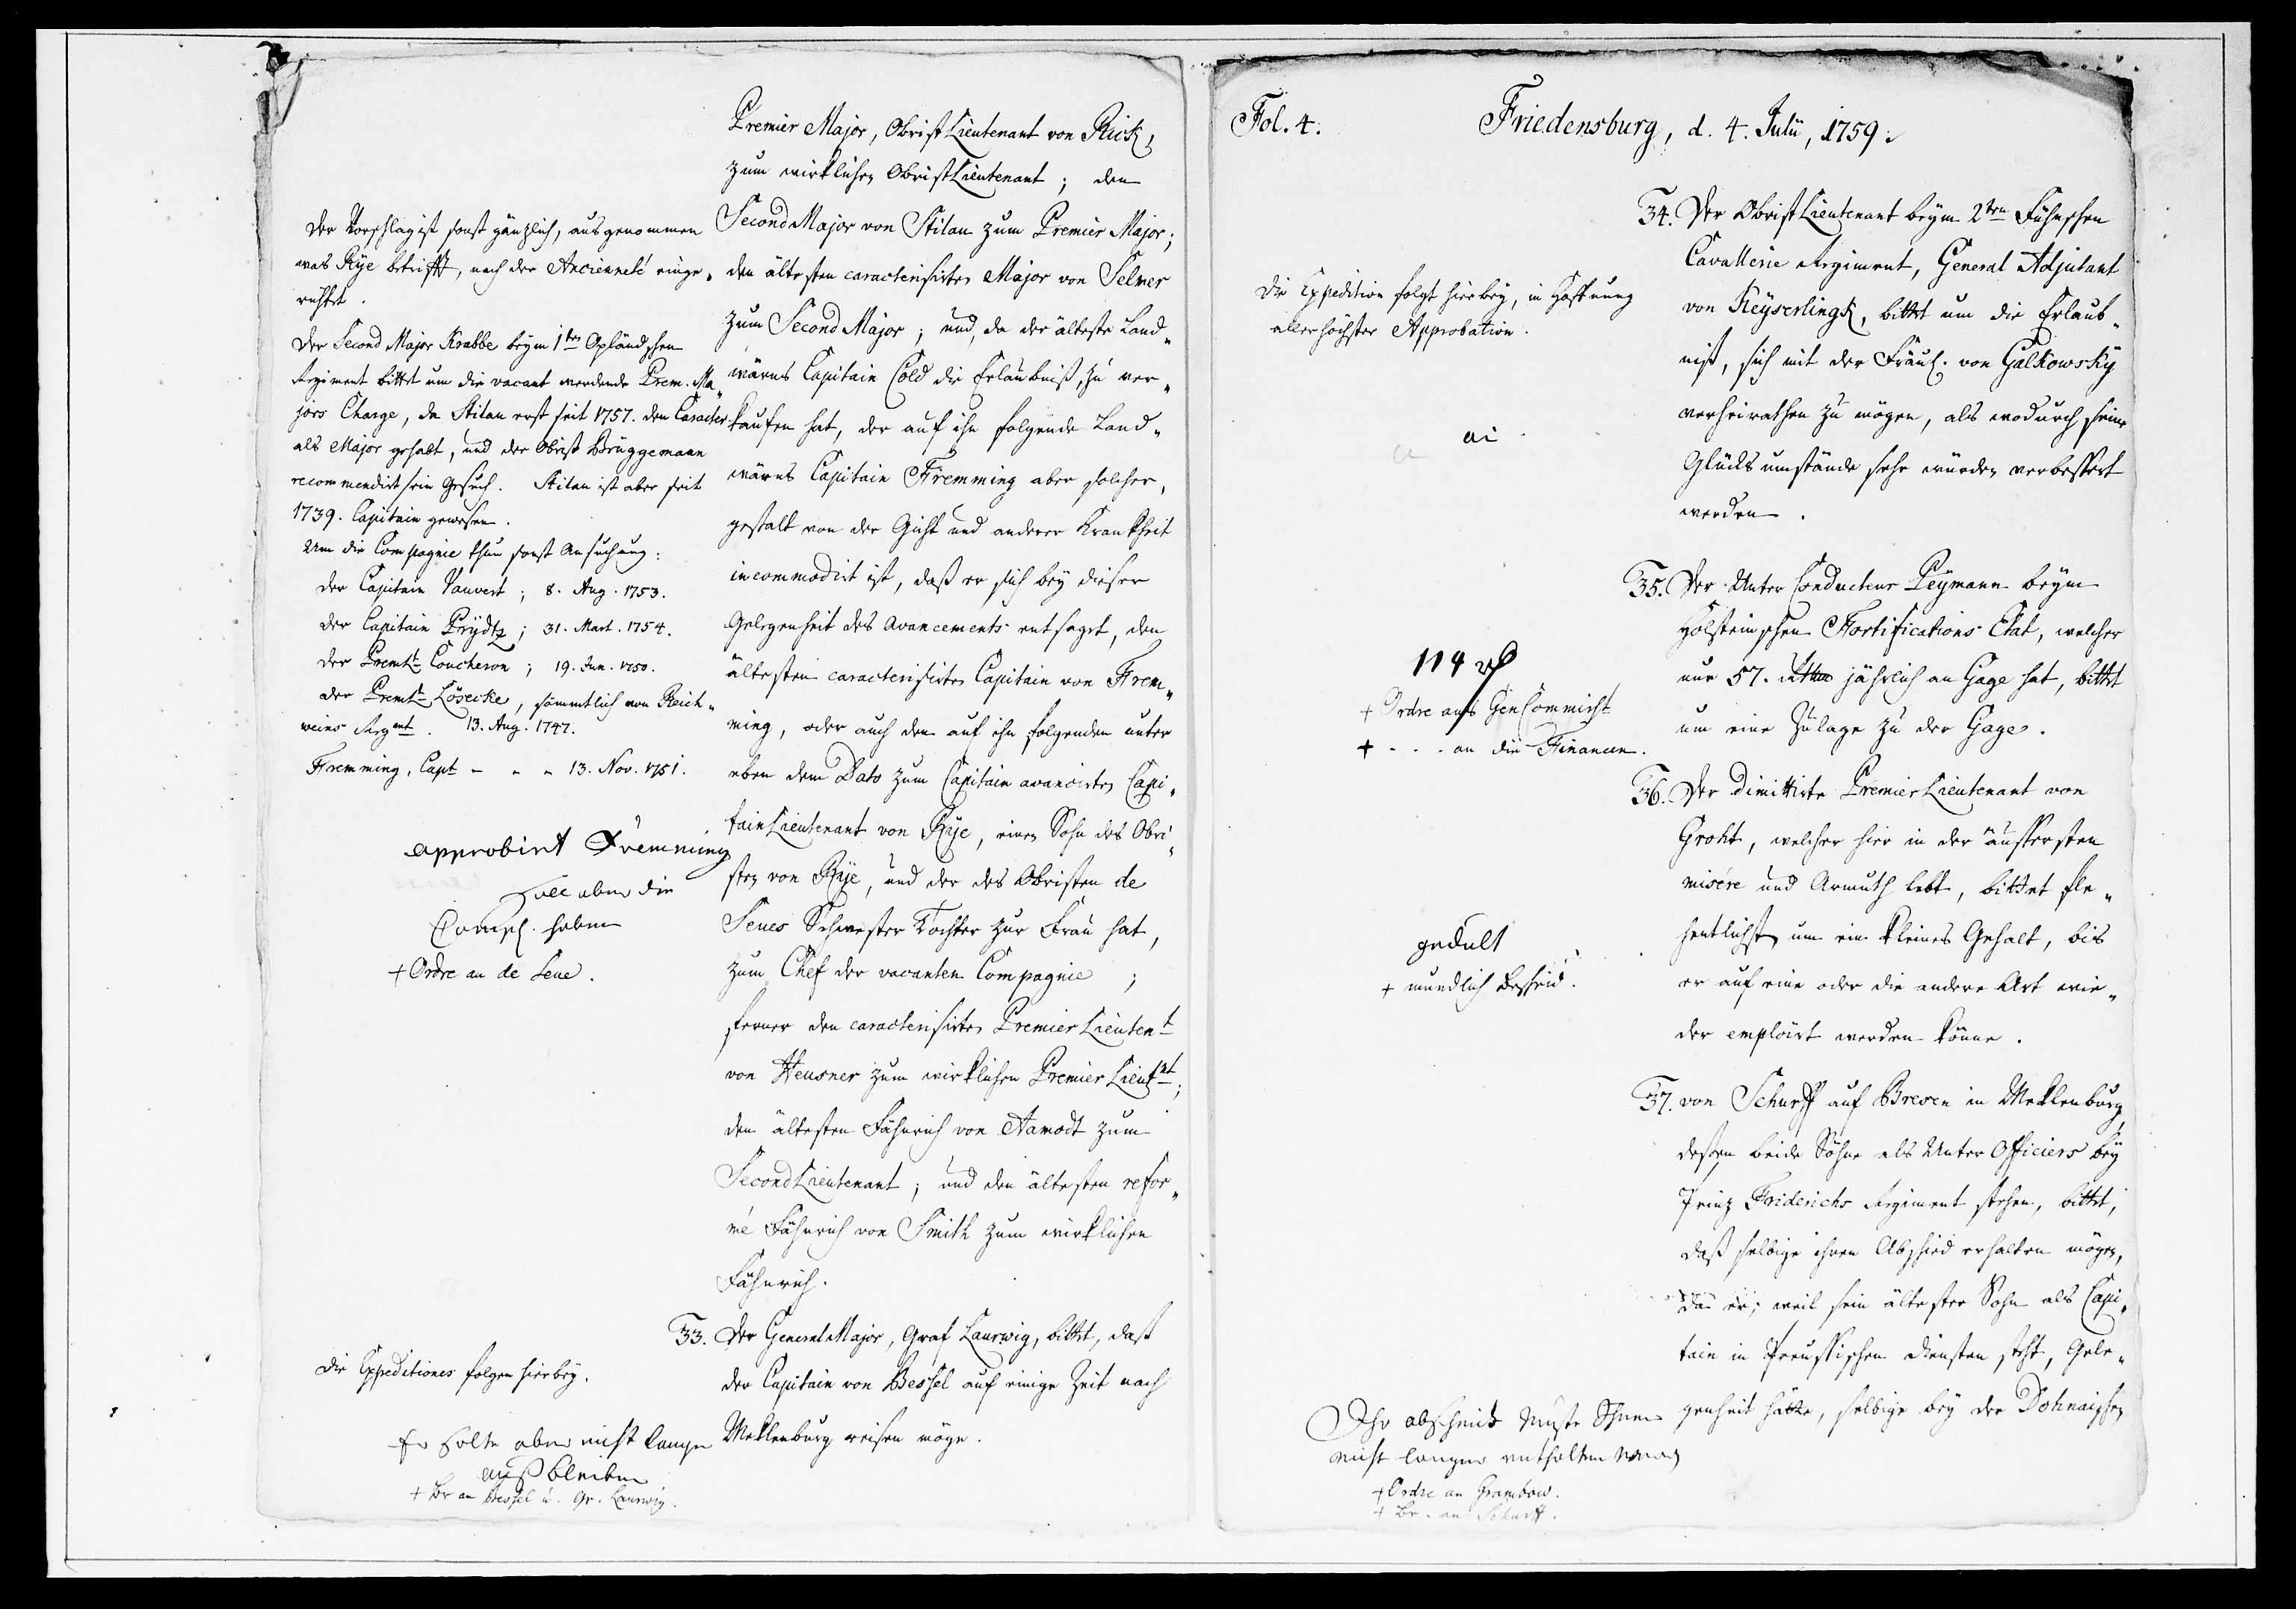 Premier Major, Obrist Lieutenant von Rick,
zum wirklichen Obrist Lieutenant; den
Second Major von Stilau zum Premier Major;
den ältesten caracterisirten Major von Selmer
zum Second Major; und, da der älteste Land„
wärns Capitain Cold die Erlaubniß, zu ver„
kaufen hat, der auf ihn folgende Land„
wärns Capitain Fremming aber solcher„
gestalt von der Gicht und anderer Krankheit
incommodirt ist, daß er sich bey dieser
Gelegenheit des Avancements entsaget, den
ältesten caracterisirten Capitain von Frem„
ming, oder auch den auf ihn folgenden unter
eben dem Dato zum Capitain avancirten Capi„
tain Lieutenant von Rÿe, einen Sohn des Obri„
sten von Rÿe, und der des Obristen de
Seues Schwester Tochter zur Frau hat,
zum Chef der vacanten Compagnie;
ferner den caracterisirten Premier Lieutent
von Heusner zum wirklichen Premier Lieutnt;
den ältesten Fähnrich von Aamodt zum
Second Lieutenant; und den ältesten refor„
mé Fähnrich von Smith zum wirklichen
Fähnrich.
33. Der General Major, Graf Laurwig, bittet, daß
der Capitain von Bessel auf einige Zeit nach
Meklenburg reisen möge.
Der Vorschlag ist sonst gänzlich, ausgenommen
was Rÿe betrifft, nach der Ancienneté einge„
richtet.
Der Second Major Krabbe beym 1ten Oplandschen
Regiment bittet um die vacant werdende Prem. Ma„
jors Charge, da Stilau erst seit 1757. den Caracter
als Major gehabt, und der Obrist Brüggemann
recommendirt sein Gesuch. Stilau ist aber seit
1739. Capitain gewesen.
Um die Compagnie thun sonst Ansuchung:
der Capitain Vauvert; 8. Aug. 1753.
der Capitain Prÿdtz; 31. Mart. 1754.
der Premlt Coucheron; 19. Jun. 1750.
der Premlt Lösecke, sämmtlich von Reich„
weins Regmt. 13. Aug. 1747.
Fremming, Capt - - - 13. Nov. 1751.
approbirt Fremming
soll aber die
Comp. haben
+ Ordre an de Seue.
Die Expeditiones folgen hierbey.
Er solte aber nicht lange
auß bleiben
+ Br an Bessel u. Gr. Laurwig.
Fol. 4.
Friedensburg, d. 4. Julii, 1759.
34. Der Obrist Lieutenant beym 2ten Fühnschen
Cavallerie Regiment, General Adjutant
von Keyserlingk, bittet um die Erlaub„
niß, sich mit der Fräul. von Galkowskÿ
verheirathen zu mögen, als wodurch seine
Glücks umstände sehr würden verbessert
werden.
35. Der Unter Conducteur Peymann beym
Holsteinschen Fortifications Etat, welcher
nur 57. Rthlr jährlich an Gage hat, bittet
um eine Zulage zu der Gage.
36. Der dimittirte Premier Lieutenant von
Groht, welcher hier in der äussersten
misère und Armuth lebt, bittet fle„
hentlichst um ein kleines Gehalt, bis
er auf eine oder die andere Art wie„
der emploirt werden könne.
37. von Schurff auf Bresen in Meklenburg,
deßen beide Söhne als Unter Officiers bey
Prinz Friderichs Regiment stehen, bittet,
daß selbige ihren Abschied erhalten mögen,
da er, weil sein ältester Sohn als Capi„
tain in Preussischen Diensten steht, Gele„
genheit hätte, selbige bey der Dohnaischen
Die Expedition folgt hierbey, in Hoffnung
allerhöchster Approbation.
114 rf
+ Ordre ans Gen Commisst
+ - - - an die Financen.
gedult
+ mundlich Bescheid.
Ihr abscheidt muste Ihnen
nicht langer enthalten werden
+ Ordre an Grambow.
+ Br. an Schurff.